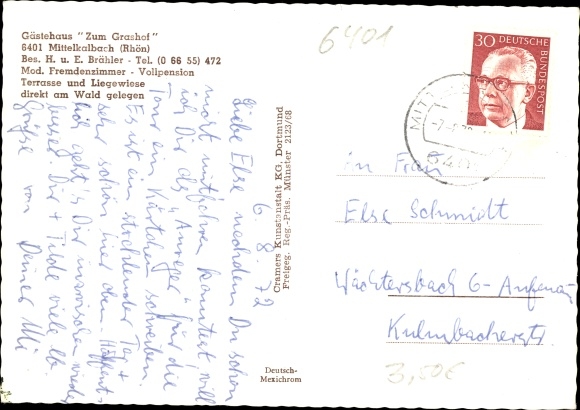 Gästehaus "Zum Grashof"
6401 Mittelkalbach (Rhön)
Bes. H. u. E. Brähler - Tel. (0 66 55) 472
Mod. Fremdenzimmer - Vollpension
Terrasse und Liegewiese
direkt am Wald gelegen
6401
30 DEUTSCHE BUNDESPOST
6. 8. 72
Liebe Else nachdem Du schon
nicht mitfahren konntest will
ich Dir als "Anreger" für die
Tour ein Kärtchen schreiben.
Es ist ein strahlender Tag +
sehr schön hier oben. Hoffentl.
geht's Dir inzwischen wieder
besser. Dir + Tilde viele lb
Grüsse von Deiner
Cramers Kunstanstalt KG, Dortmund
Freigeg. Reg.-Präs. Münster 2123/68
An Frau
Else Schmidt
Wächtersbach 6-Aufenau
Kulmbacherstr.
Deutsch-
Mexichrom
3,50€